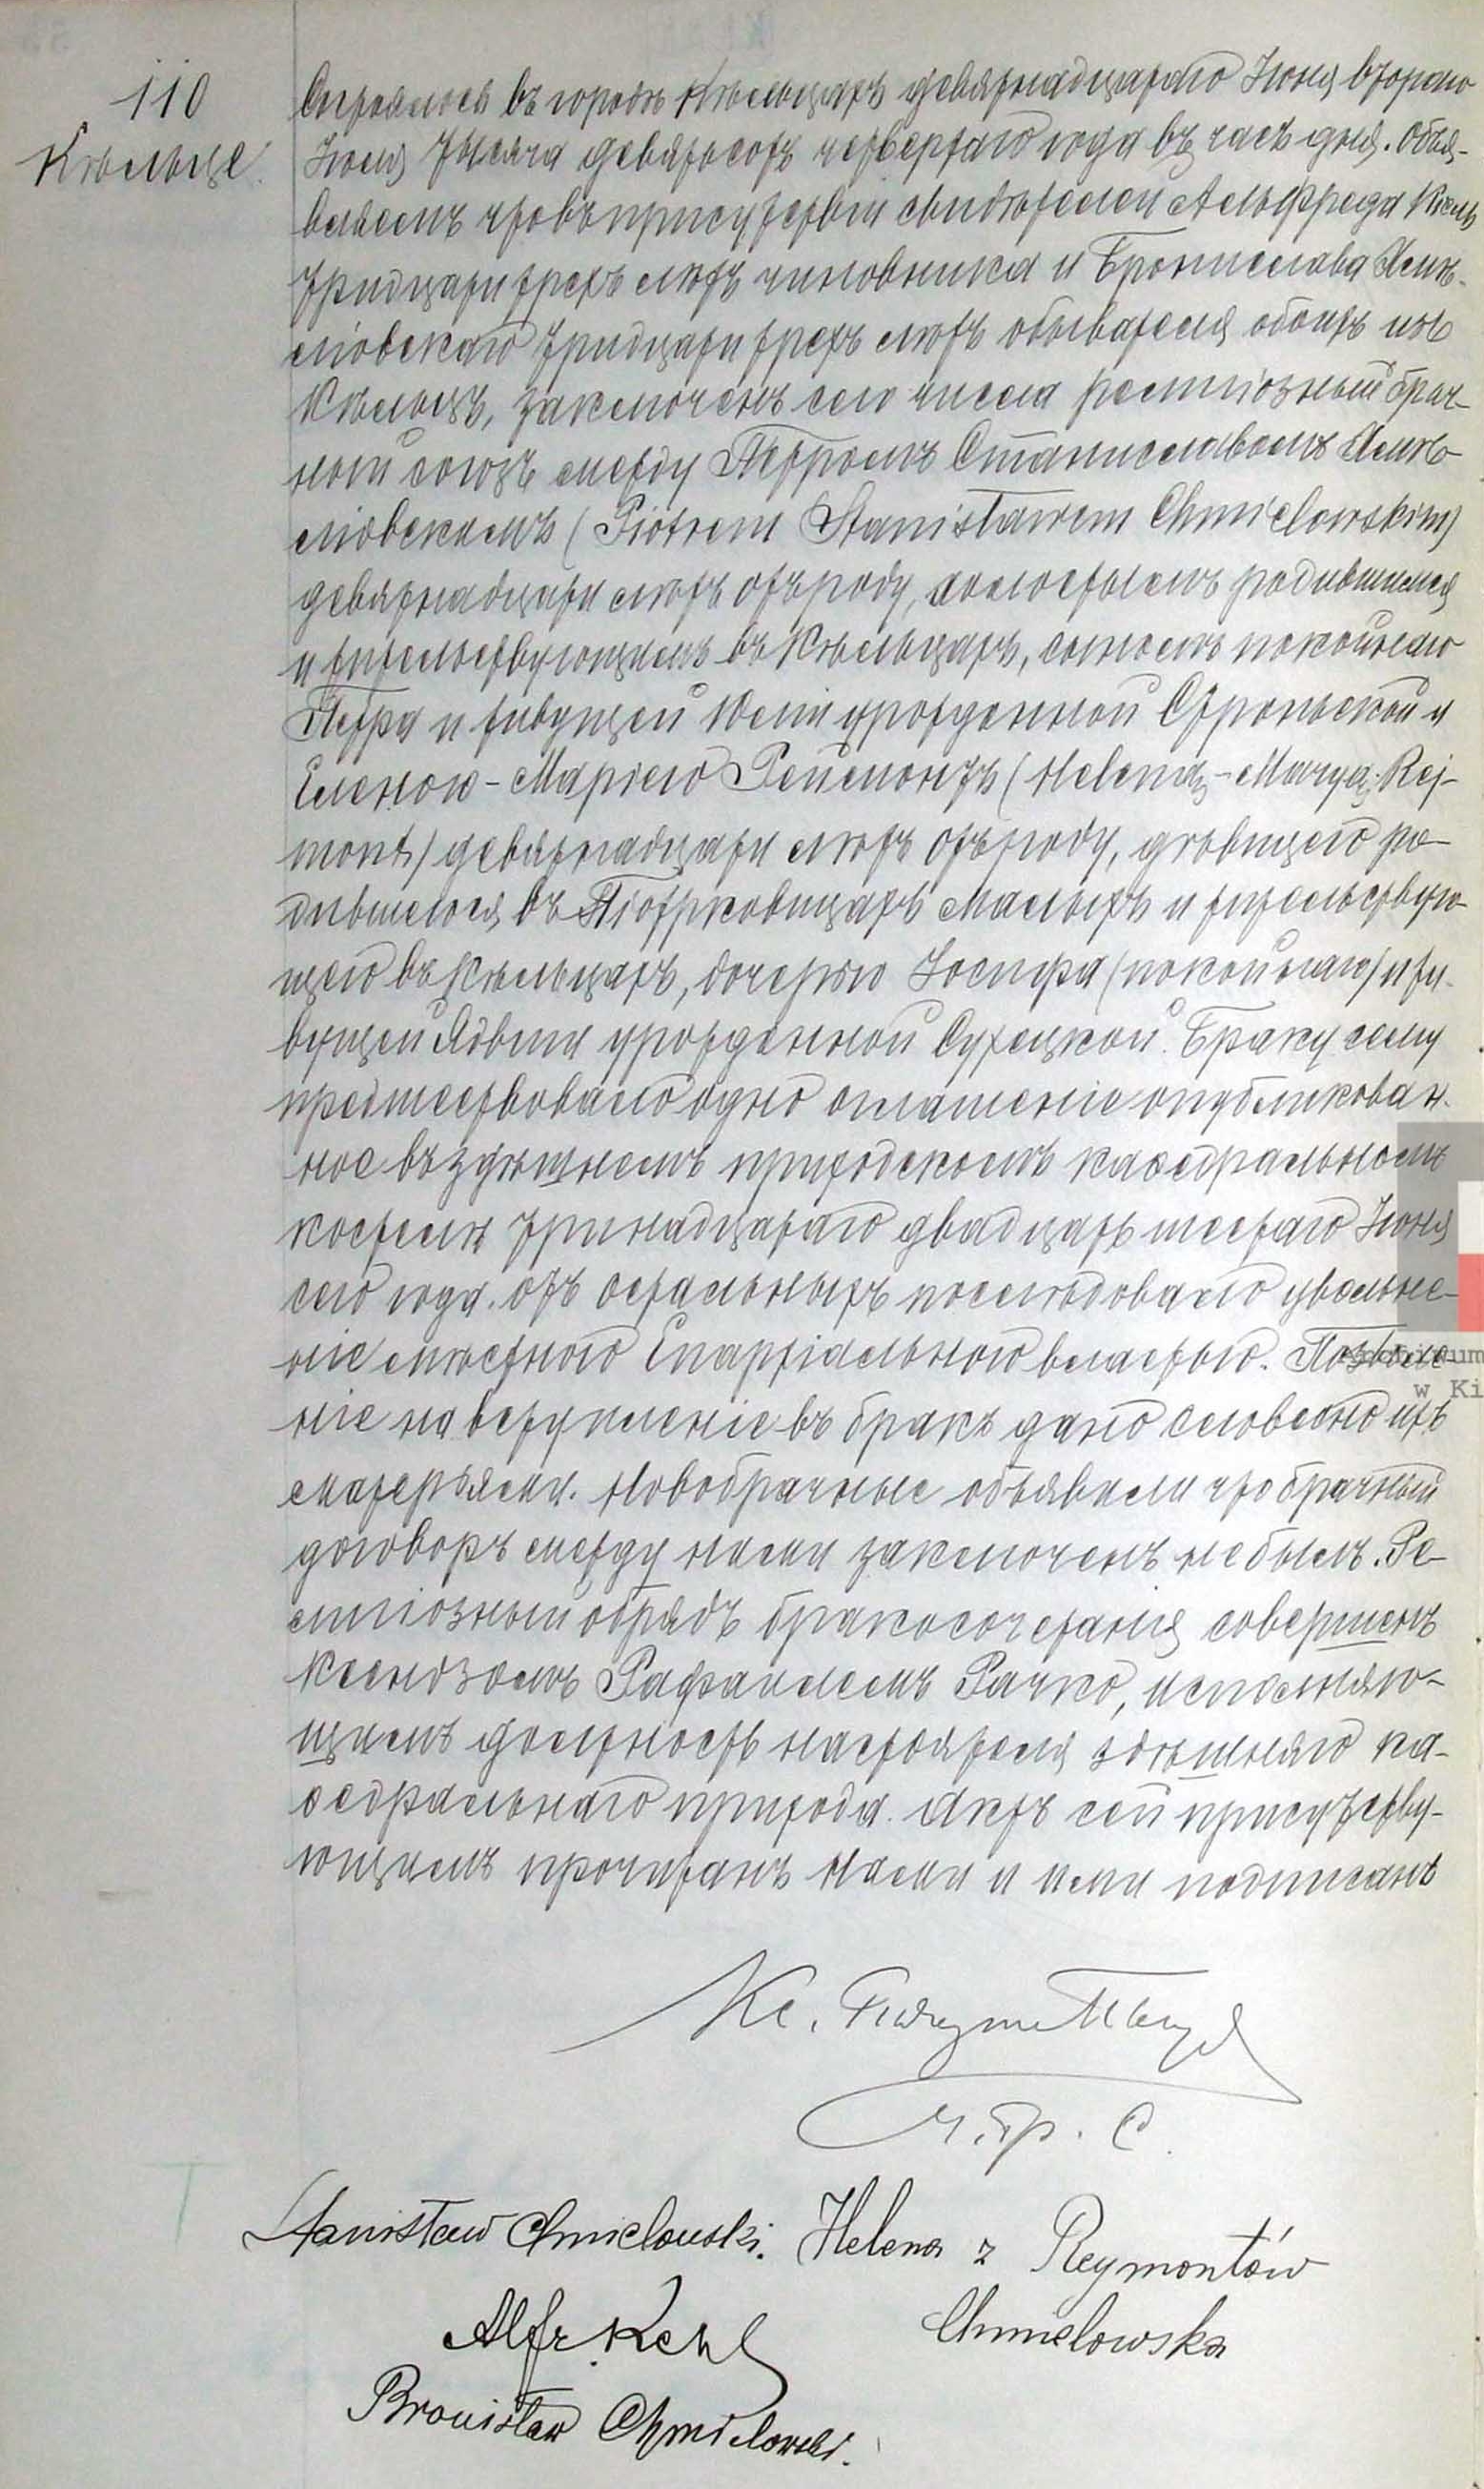 110
Кѣльце.
Состоялось въ городѣ Кѣльцахъ девятнадцатаго Іюня втораго
Іюля тысяча девятьсотъ четвертаго года въ часъ дня. Объя-
вляемъ что въ присутствіи свидѣтелей Альфреда
тридцати трехъ лѣтъ чиновника и Бронислава Хмѣ-
лёвскаго тридцати трехъ лѣтъ обывателя обоихъ изъ
Кѣльцъ, заключенъ сего числа религіозный брач-
ный союзъ между Петромъ Станиславомъ Хмѣ-
лёвскимъ (Piotrem Stanisławem Chmielowskim)
девятнадцати лѣтъ отъ роду, холостымъ родившимся
и жительствующимъ въ Кѣльцахъ, сыномъ покойнаго
Петра и живущей Юліи урожденной Стройской и
Еленою-Маріею Реймонтъ (Heleną-Maryą Rej-
mont) девятнадцати лѣтъ отъ роду, дѣвицею ро-
дившеюся въ Піотрковицахъ Малыхъ и жительствую-
щею въ Кѣльцахъ, дочерью Іосифа (покойнаго) и жи-
вущей Ядвиги урожденной Сужецкой. Браку сему
предшествовало одно оглашеніе опубликован-
ное въ здѣшнемъ приходскомъ каѳедральномъ
костелѣ тринадцатаго двадцать шестаго Іюня
сего года. отъ остальныхъ послѣдовало увольне-
ніе мѣстною Епархіальною властью. Позволе-
ніе на вступленіе въ бракъ дано словесно ихъ
матерьями. Новобрачные объявили что брачный
договоръ между ними заключенъ не былъ. Ре-
лигіозный обрядъ бракосочетанія совершенъ
Ксендзомъ Рафаиломъ Рачко, исполняю-
щимъ должность настоятеля здѣшняго ка-
ѳедральнаго прихода. Актъ сей присутству-
ющимъ прочитанъ Нами и ими подписанъ
Кс.
Stanisław Chmielowski. Helena z Reymontów
Chmielowska
Alfr. Kehl
Bronisław Chmielowski.
w Ki